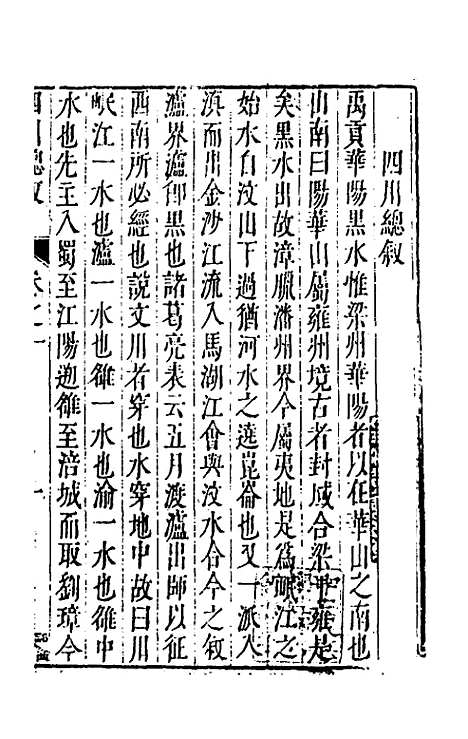 四川總叙
禹貢華陽黑水惟梁州華陽者以在華山之南也
山南曰陽華山屬雍州境古者封域合梁于雍是
矣黑水出故漳臘潘州界今屬夷地是爲岷江之
始水自汶山下過猶河水之遶崑崙也又一派入
滇而出金沙江流入馬湖江會與汶水合今之叙
瀘界瀘卽黑也諸葛亮表云五月渡瀘出師以征
西南所必經也說文川者穿也水穿地中故曰川
岷江一水也瀘一水也雒一水也渝一水也雒中
水也先主入蜀至江陽遡雒至涪城而取劉璋今
四川總叙
卷之一
一